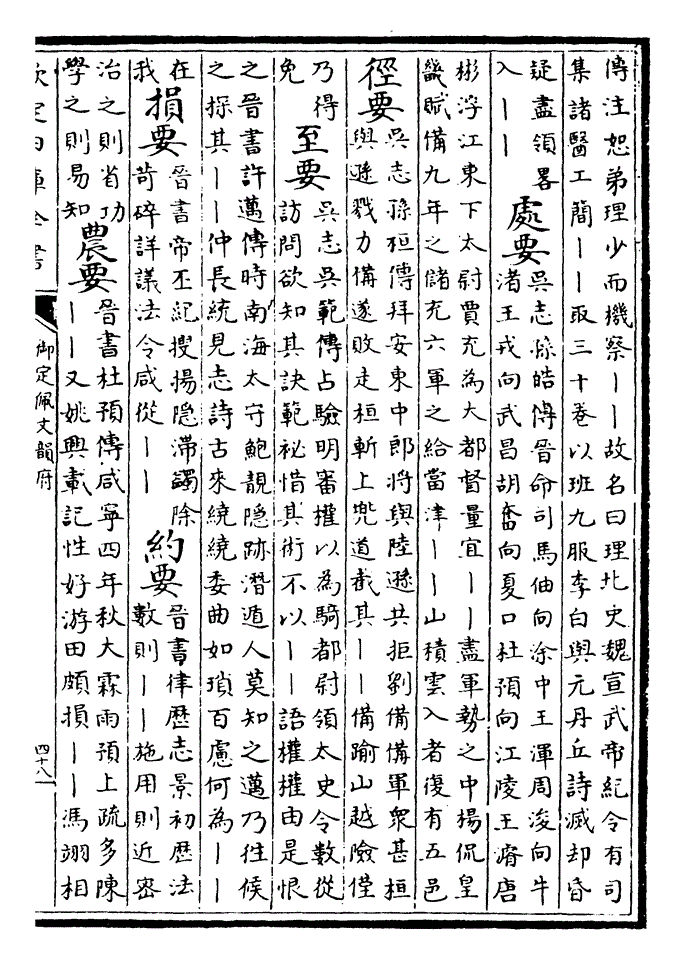 傳注恕弟理少而機察丨丨故名曰理北史魏宣武帝紀令有司
集諸醫工簡丨丨取三十卷以班九服李白與元丹丘詩滅却昏
疑盡領畧
入丨丨
處要
吳志孫皓傳晉命司馬伷向涂中王渾周浚向牛
渚王戎向武昌胡奮向夏口杜預向江陵王濬唐
彬浮江東下太尉賈充為大都督量宜丨丨盡軍勢之中楊侃皇
畿賦備九年之儲充六軍之給當津丨丨山積雲入者復有五邑
徑要
吳志孫桓傳拜安東中郎將與陸遜共拒劉備備軍衆甚桓
與遜戮力備遂敗走桓斬上兜道截其丨丨備踰山越險僅
乃得
免
至要
吳志吳範傳占驗明審權以為騎都尉領太史令數從
訪問欲知其訣範祕惜其術不以丨丨語權權由是恨
之晉書許邁傳時南海太守鮑靚隱跡潛遁人莫知之邁乃往候
之探其丨丨仲長統見志詩古來繞繞委曲如瑣百慮何為丨丨
在
我
損要
晉書帝丕紀搜揚隱滯蠲除
苛碎詳議法令咸從丨丨
約要
晉書律歷志景初歷法
數則丨丨施用則近密
治之則省功
學之則易知
農要
晉書杜預傳咸寧四年秋大霖雨預上疏多陳
丨丨又姚興載記性好游田頗損丨丨馮翊相
欽定四庫全書
御定佩文韻府
四十八